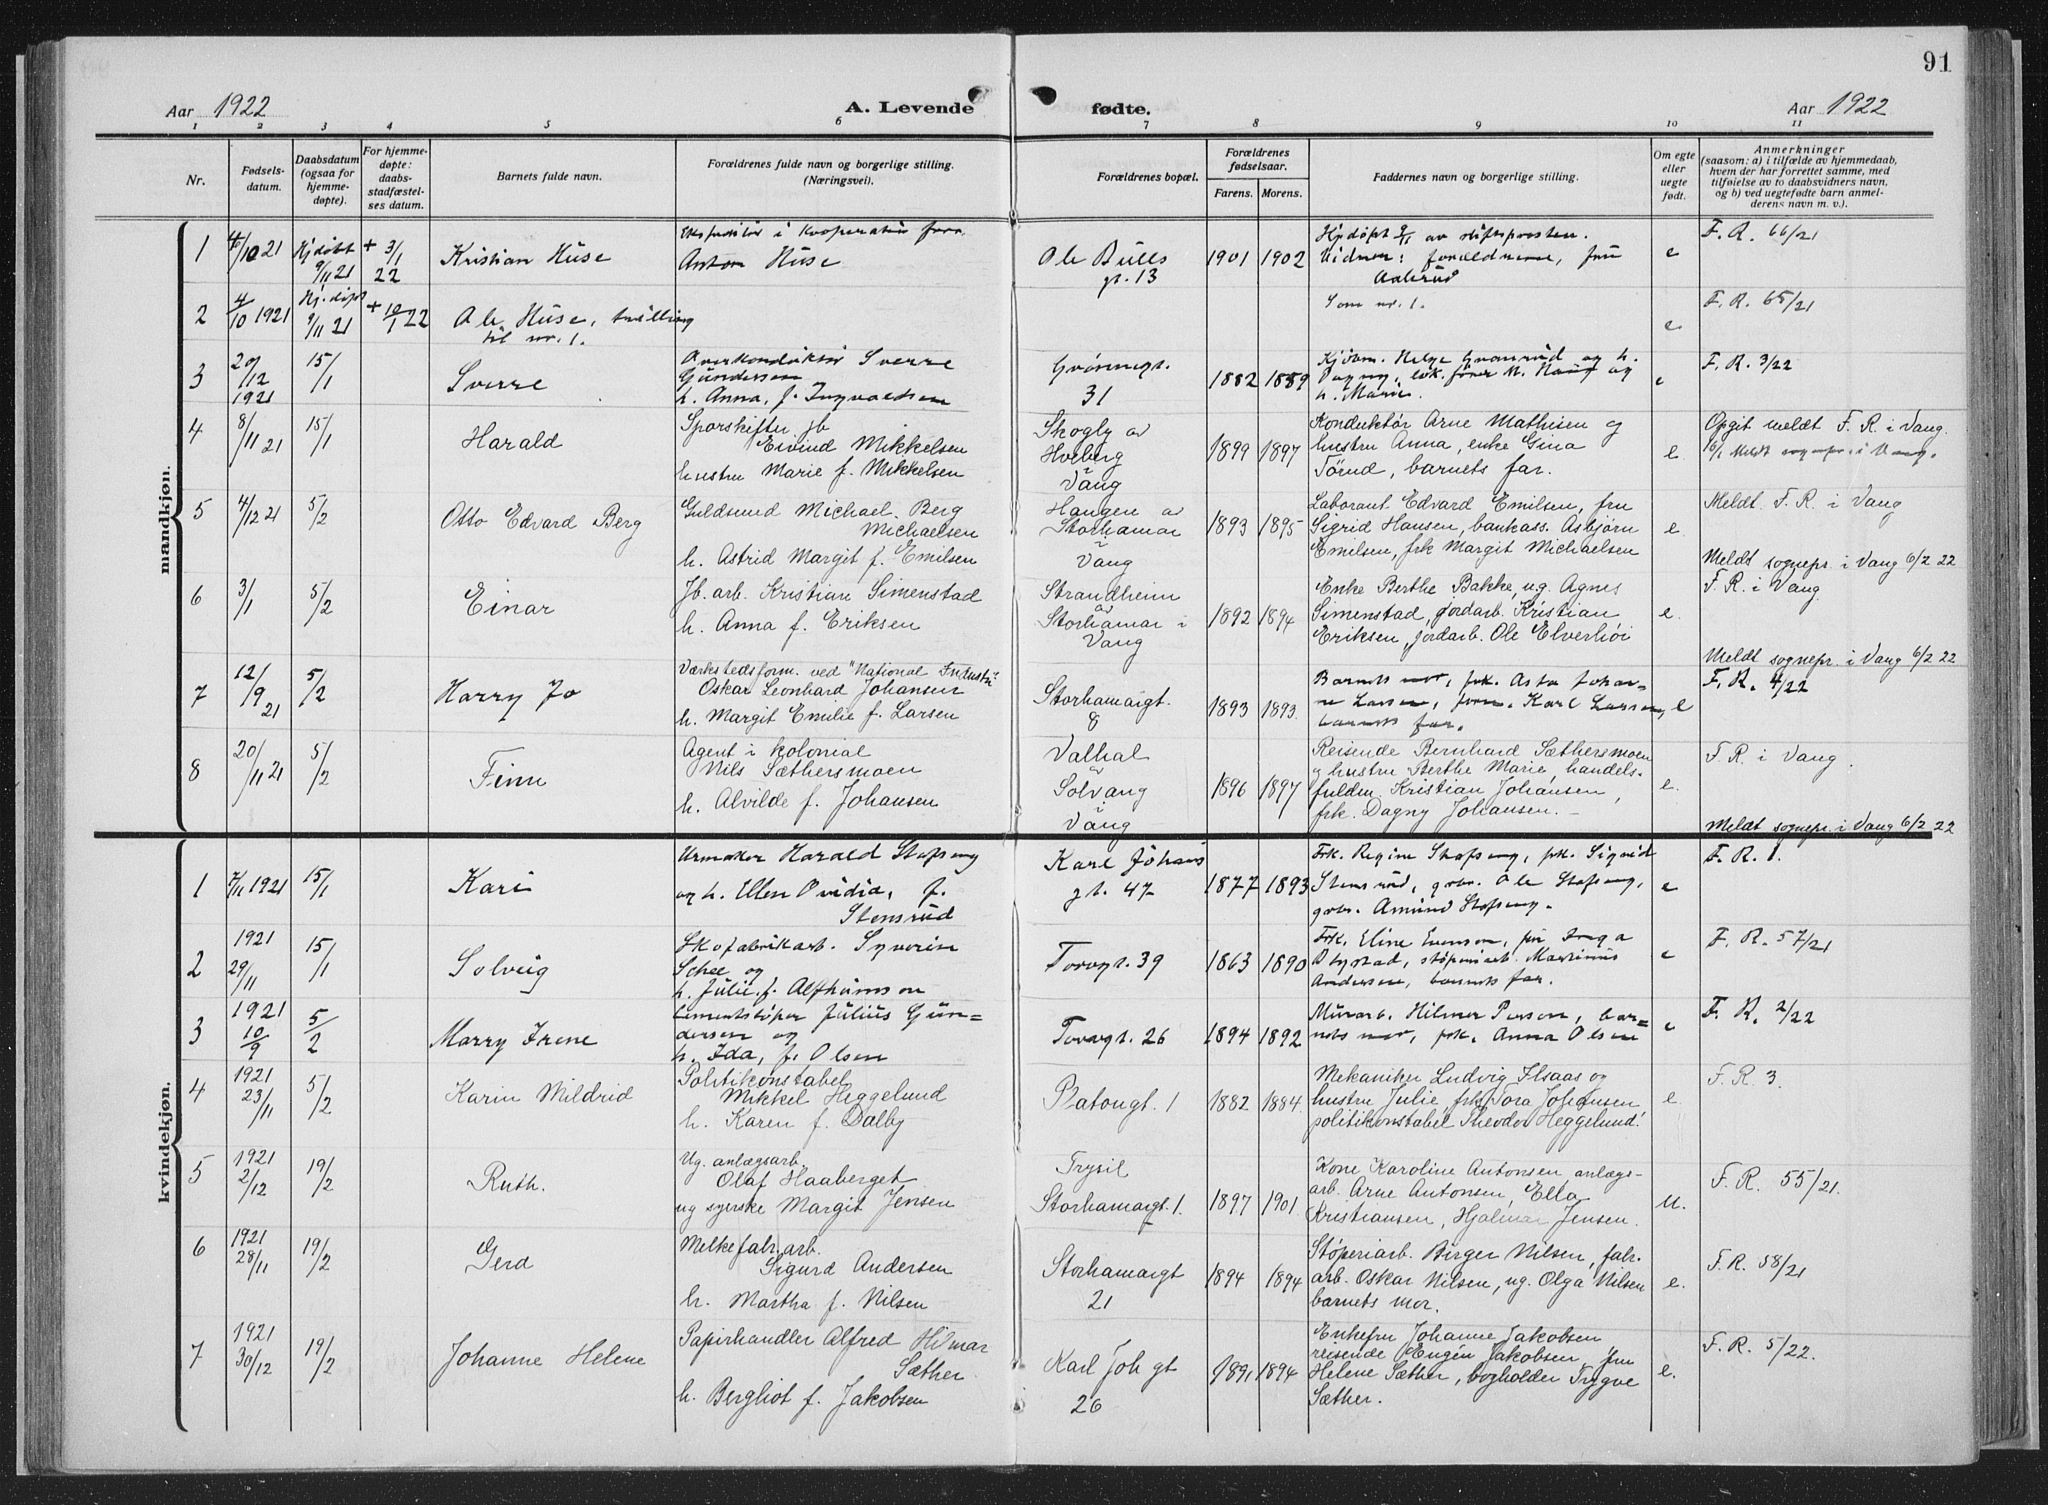 91
Aar 1922 A. Levende fødte. Aar 1922
1 2 3 4 5 6 7 8 9 10 11
Nr.
Fødsels-
datum.
Daabsdatum
(ogsaa for
hjemme-
døpte).
For hjemme-
døpte:
daabs-
stadfæstel-
ses datum.
Barnets fulde navn.
Forældrenes fulde navn og borgerlige stilling.
(Næringsvei).
Forældrenes bopæl.
Forældrenes
fødselsaar.
Farens. Morens.
Faddernes navn og borgerlige stilling.
Om egte
eller
uegte
født.
Anmerkninger
(saasom: a) i tilfælde av hjemmedaab,
hvem der har forrettet samme, med
tilføielse av to daabsvidners navn,
og b) ved uegtefødte barn anmel-
derens navn m. v.).
mandkjøn.
1
4/10 21
Hjdøbt
9/11 21
+ 3/1
22
Kristian Huse
Anton Huse
Ole Bulls
gt. 13
1901 1902
Hjdøpt 9/11 av stiftsprosten.
Vidner: forældrene, fru
Aalerud
e
F. R. 66/21
2
4/10 1921
Hj. døpt
9/11 21
+ 10/1 22
Ole Huse, tvilling
til nr. 1.
Som nr. 1.
e
F. R. 65/21
3
20/12
1921
15/1
Sverre
Overkonduktør Sverre
Gundersen
h. Anna, f. Ingvaldsen
Grønnegt.
31
1882 1889
h. Marie.
e
F. R. 3/22
4
8/11 21
15/1
Harald
Sporskifter jb
Eivind Mikkelsen
hustru Marie f. Mikkelsen
Skogly av
Hoberg
i
Vang
1899 1897
Konduktør Arne Mathisen og
hustru Anna, enke Gina
Törud, barnets far.
e.
Opgit meldt F. R. i Vang.
16/1 Meldt sognepr. i Vang.
5
4/12 21
5/2
Otto Edvard Berg
Guldsmed Michael Berg
Michaelsen
h. Astrid Margit f. Emilsen
Haugen av
Storhamar
i
Vang
1893 1895
Laborant Edvard Emilsen, fru
Sigrid Hansen, bankass. Asbjørn
Emilsen, frk Margit Michaelsen
e.
Meldt F. R. i Vang
Meldt sognepr. i Vang 6/2 22
6
3/1
5/2
Einar
Jb. arb. Kristian Simenstad
h. Anna f. Eriksen
Strandheim
av
Storhamar i
Vang
1892 1894
Enke Berthe Bakke, ug. Agnes
Simenstad, jordarb. Kristian
Eriksen, jordarb. Ole Elverhöi
e.
F. R. i Vang
Meldt sognepr. i Vang 6/2 22
7
12/9 21
5/2
Harry Jo
Værkstedsform. ved "National Industri"
Oskar Leonhard Johansen
h. Margit Emilie f. Larsen
Storhamargt.
8
1893 1893.
Barnets mor, frk. Asta Johan-
ne Larsen, form. Karl Larsen,
barnets far.
e
F. R. 4/22
8
20/11 21
5/2
Finn
Agent i kolonial
Nils Sæthersmoen
h. Alvilde f. Johansen
Valhal
av
Solvang
i
Vang
1896 1897
Reisende Bernhard Sæthersmoen
og hustru Berthe Marie, handels-
fuldm. Kristian Johansen,
frk. Dagny Johansen.
e.
F. R. i Vang.
Meldt sognepr. i Vang 6/2 22
kvindekjøn.
1
7/11 1921
15/1
Kari
Urmaker Harald Stafseng
og h. Ellen Ovidia, f.
Stensrud
Karl Johans
gt. 47
1877 1893
Frk. Regine Stafseng, frk. Sigrid
Stensrud, gbr. Ole Stafseng,
gbr. Amund Stafseng.
e
F. R. 1.
2
1921
29/11
15/1
Solveig
Skofabrikarb. Syverin
Schee og
h. Julie, f. Alfthumson
Torvgt. 39
1863 1890
Frk. Eline Evensen,
Andersen, barnets far.
e
F. R. 57/21
3
1921
10/9
5/2
Marry Irene
Cementstøper Julius Gun=
dersen og
h. Ida, f. Olsen
Torvgt. 26
1894 1892
Murarb. Hilmer Person, bar=
nets mor, frk. Anna Olsen
e
F. R. 2/22
4
1921
23/11
5/2
Karin Mildrid
Politikonstabel
Mikkel Heggelund
h. Karen f. Dalby
Platougt. 1
1882 1884.
Mekaniker Ludvig Ilsaas og
hustru Julie, frk Tora Johansen
politikonstabel Theodor Heggelund.
e.
F. R. 3.
5
1921
2/12
19/2
Ruth.
Ug. anlægsarb.
Olaf Haaberget
ug syerske Margit Jensen
Trysil
Storhamargt. 1.
1897 1901.
Kone Karoline Antonsen, anlægs-
arb. Arne Antonsen, Ella
Kristiansen, Hjalmar Jensen.
u.
F. R. 55/21.
6
1921
28/11
19/2
Gerd
Melkefabr. arb.
Sigurd Andersen
h. Martha f. Nilsen
Storhamargt
21
1894 1894
Støperiarb. Birger Nilsen, fabr.
arb. Oskar Nilsen, ug. Olga Nilsen
barnets mor.
e.
F. R. 58/21
7
1921
30/12
19/2
Johanne Helene
Papirhandler Alfred Hilmar
Sæther
h. Bergliot f. Jakobsen
Karl Joh gt
26
1891 1894
Enkefru Johanne Jakobsen
reisende Eugen Jakobsen, fru
Helene Sæther, bogholder Trygve
Sæther.
e.
F. R. 5/22.